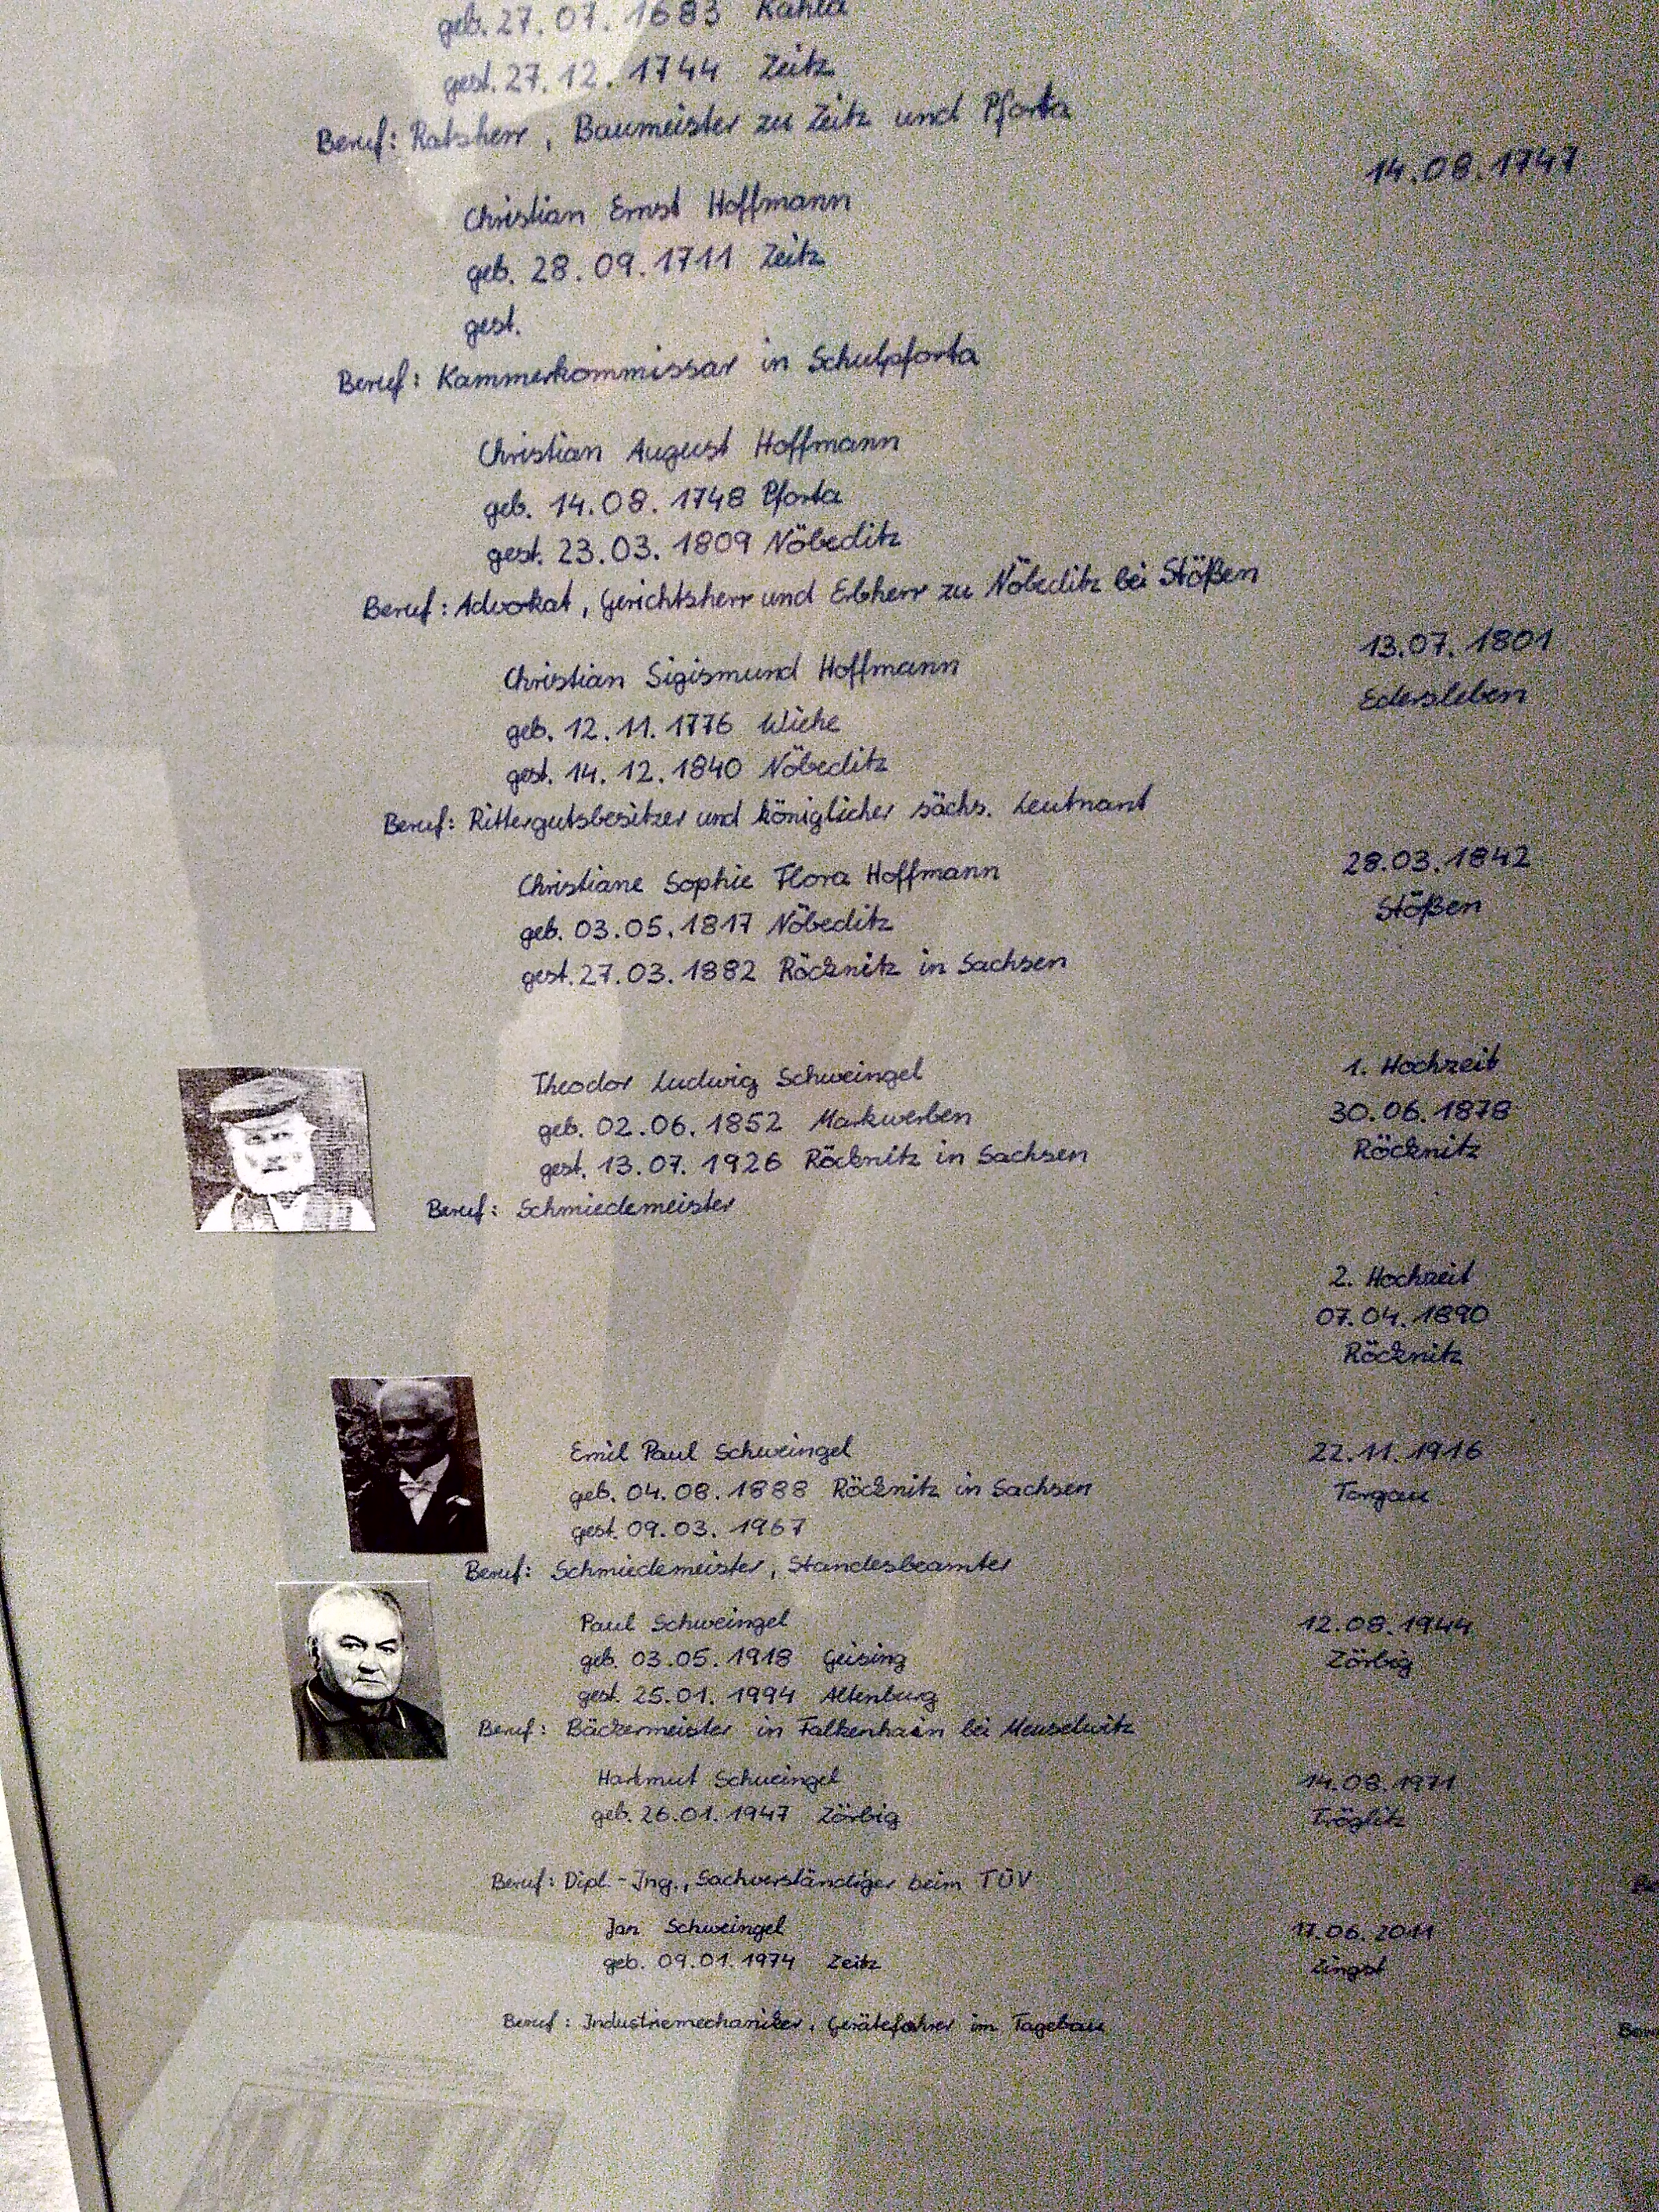 geb. 27.07.1683 Kahla
gest. 27.12.1744 Zeitz
Beruf: Ratsherr, Baumeister zu Zeitz und Pforta
14.08.1747
Christian Ernst Hoffmann
geb. 28.09.1711 Zeitz
gest.
Beruf: Kammerkommissar in Schulpforta
Christian August Hoffmann
geb. 14.08.1748 Pforta
gest. 23.03.1809 Nöbeditz
Beruf: Advokat, Gerichtsherr und Erbherr zu Nöbeditz bei Stößen
13.07.1801
Edersleben
Christian Sigismund Hoffmann
geb. 12.11.1776 Wiehe
gest. 14.12.1840 Nöbeditz
Beruf: Rittergutsbesitzer und königlicher sächs. Leutnant
28.03.1842
Stößen
Christiane Sophie Flora Hoffmann
geb. 03.05.1817 Nöbeditz
gest. 27.03.1882 Röcknitz in Sachsen
1. Hochzeit
30.06.1878
Röcknitz
Theodor Ludwig Schweingel
geb. 02.06.1852 Markwerben
gest. 13.07.1926 Röcknitz in Sachsen
Beruf: Schmiedemeister
2. Hochzeit
07.04.1890
Röcknitz
Emil Paul Schweingel
geb. 04.08.1888 Röcknitz in Sachsen
gest. 09.03.1967
Beruf: Schmiedemeister, Standesbeamter
22.11.1916
Torgau
Paul Schweingel
geb. 03.05.1918 Geising
gest. 25.01.1994 Altenburg
Beruf: Bäckermeister in Falkenhain bei Meuselwitz
12.08.1944
Zörbig
Hartmut Schweingel
geb. 26.01.1947 Zörbig
14.08.1971
Tröglitz
Beruf: Dipl.-Ing., Sachverständiger beim TÜV
Jan Schweingel
geb. 09.01.1974 Zeitz
17.06.2011
Zingst
Beruf: Industriemechaniker, Gerätefahrer im Tagebau